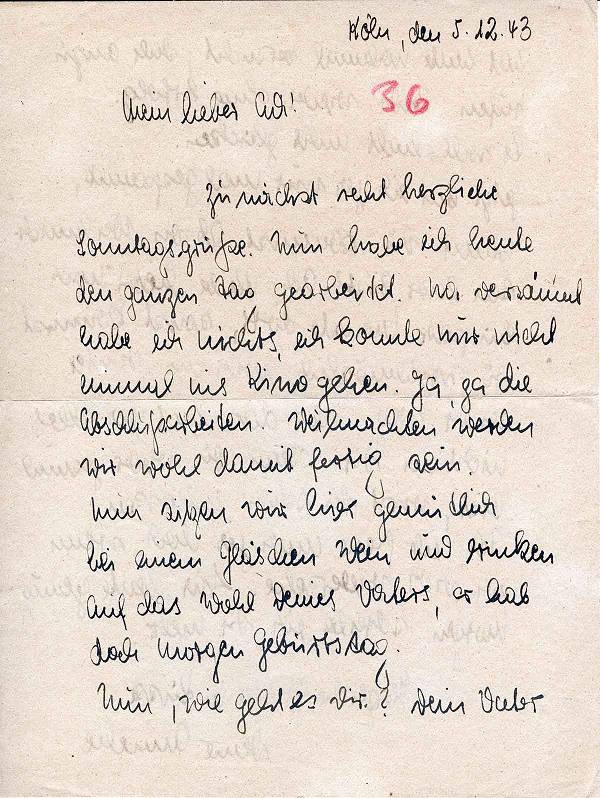 Köln, den 5.12.43
36
Mein lieber Adi!
Zunächst recht herzliche
Sonntagsgrüße. Nun habe ich heute
den ganzen Tag gearbeitet. Na, versäumt
habe ich nichts, ich konnte nur nicht
einmal ins Kino gehen. Ja, ja die
Abschlußarbeiten. Weihnachten werden
wir wohl damit fertig sein.
Nun sitzen wir hier gemütlich
bei einem Gläschen Wein und trinken
auf das Wohl Deines Vaters, er hat
doch morgen Geburtstag.
Nun, wie geht es Dir? Dein Vater